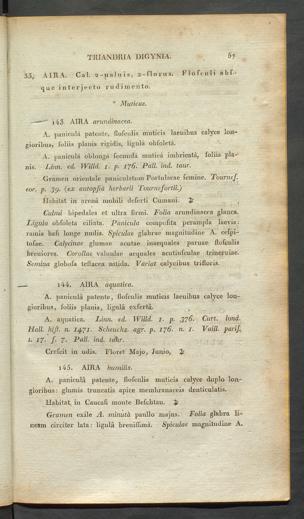 TRIANDRIA DIGYNIA. 67
55. AIRA. Cal. 2-valvis, 2-florus. Flosculi abs-
que interjecto rudimento.
* Muticae.
143. AIRA arundinacea.
A. panicula patente, flosculis muticis laevibus calyce lon-
gioribus, foliis planis rigidis, ligula obsoleta.
A. panicula oblonga secunda mutica imbricata, foliis pla-
nis. Linn. ed. Willd. 1. p. 376. Pall. ind. taur.
Gramen orientale paniculatum Portulacae semine. Tournef.
cor. p. 39. (ex autopsia herbarii Tournefortii.)
Habitat in arena mobili deserti Cumani.
Culmi bipedales et ultra firmi. Folia arundinacea glauca.
Ligula obsoleta ciliata. Panicula composita perampla laevis:
ramis basi longe nudis. Spiculae glabrae magnitudine A. cespi-
tosae. Calycinae glumae acutae inaequales parvae flosculis
breviores. Corollae valvulae arquales acutiusculae trinervae.
Semina globosa testacea nitida. Variat calycibus trifloris.
144. AIRA aquatica.
A. panicula patente, flosculis muticis laevibus calyce lon-
gioribus, foliis planis, ligula exserta.
A. aquatica. Linn. ed. Willd. 1. p. 376. Curt. lond.
Hall. hist. n. 1471. Scheuchz. agr. p. 176. n. 1. Vaill. paris.
t. 17. f. 7. Pall. ind. taur.
Crescit in udis. Floret Majo, Junio,
145. AIRA humilis.
A. panicula patente, flosculis muticis calyce duplo lon-
gioribus: glumis truncatis apice membranaceis denticulatis.
Habitat in Caucasi monte Beschtau.
Gramen exile A. minuta paullo majus. Folia glabra li-
neam circiter lata: ligula brevissima. Spiculae magnitudine A.